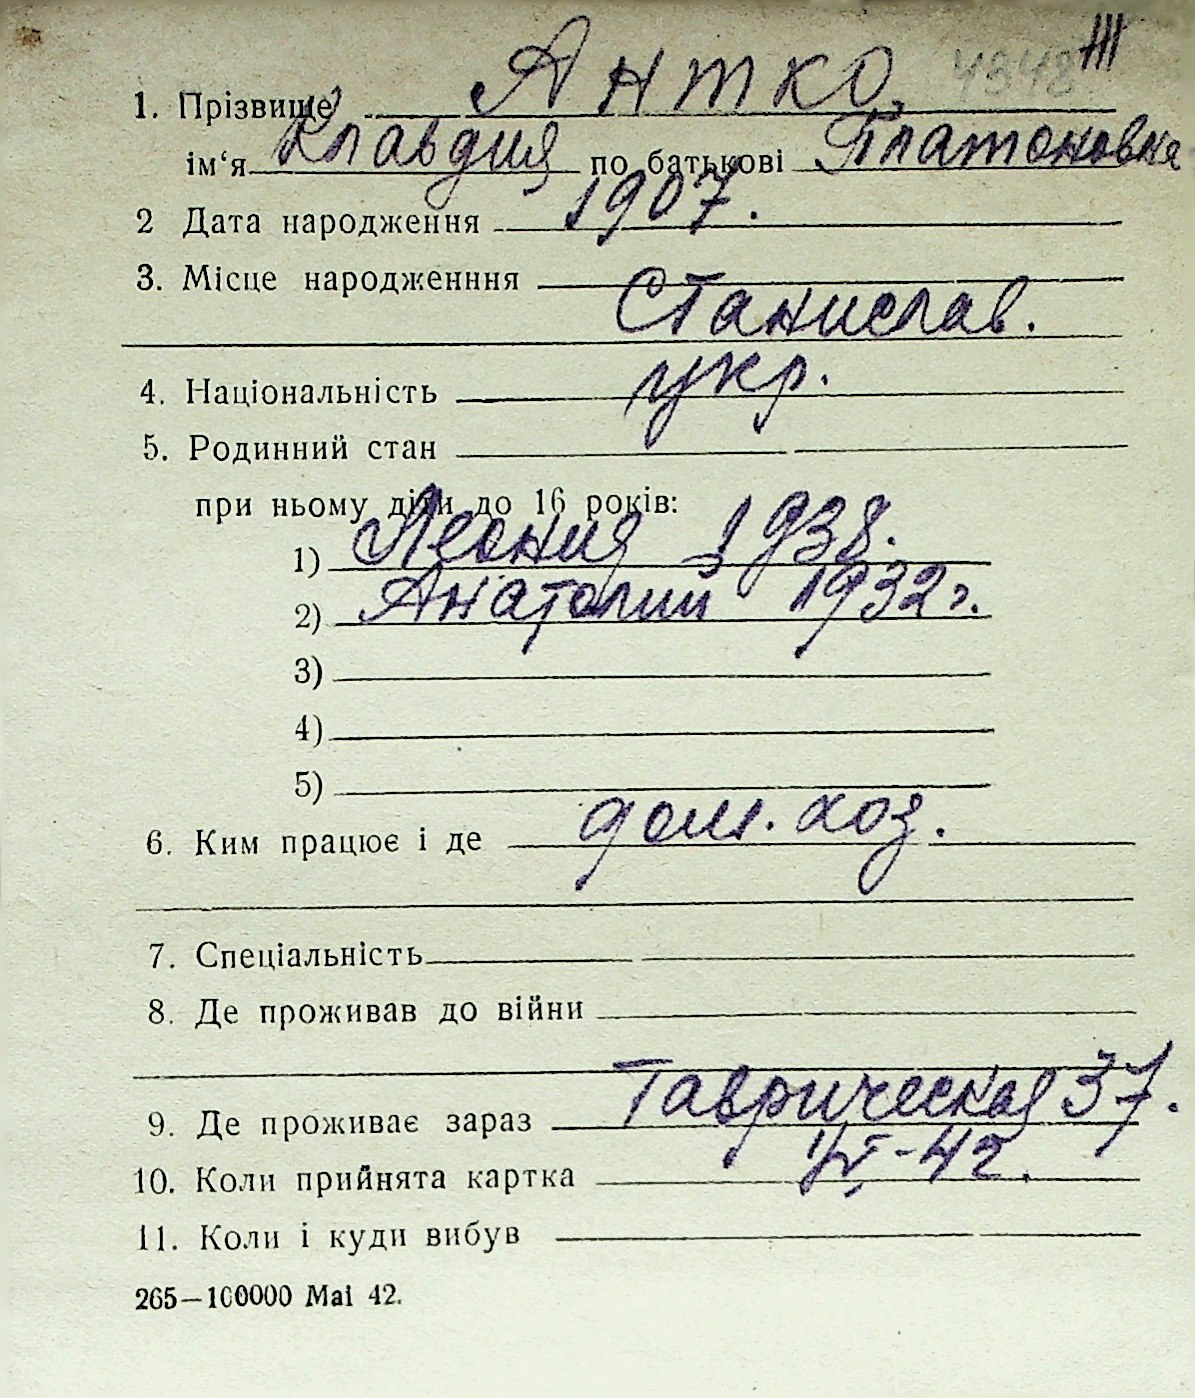 4348 III
1. Прізвище Антко
ім‘я Клавдия по батькові Платоновна
2 Дата народження 1907.
3. Місце народженння
Станислав.
4. Національність укр.
5. Родинний стан
при ньому діти до 16 років:
1) Леония 1938.
2) Анатолий 1932 г.
3)
4)
5)
6. Ким працює і де дом. хоз.
7. Спеціальність
8. Де проживав до війни
9. Де проживає зараз Таврическая 37.
10. Коли прийнята картка VI-42.
11. Коли і куди вибув
265—100000 Mai 42.